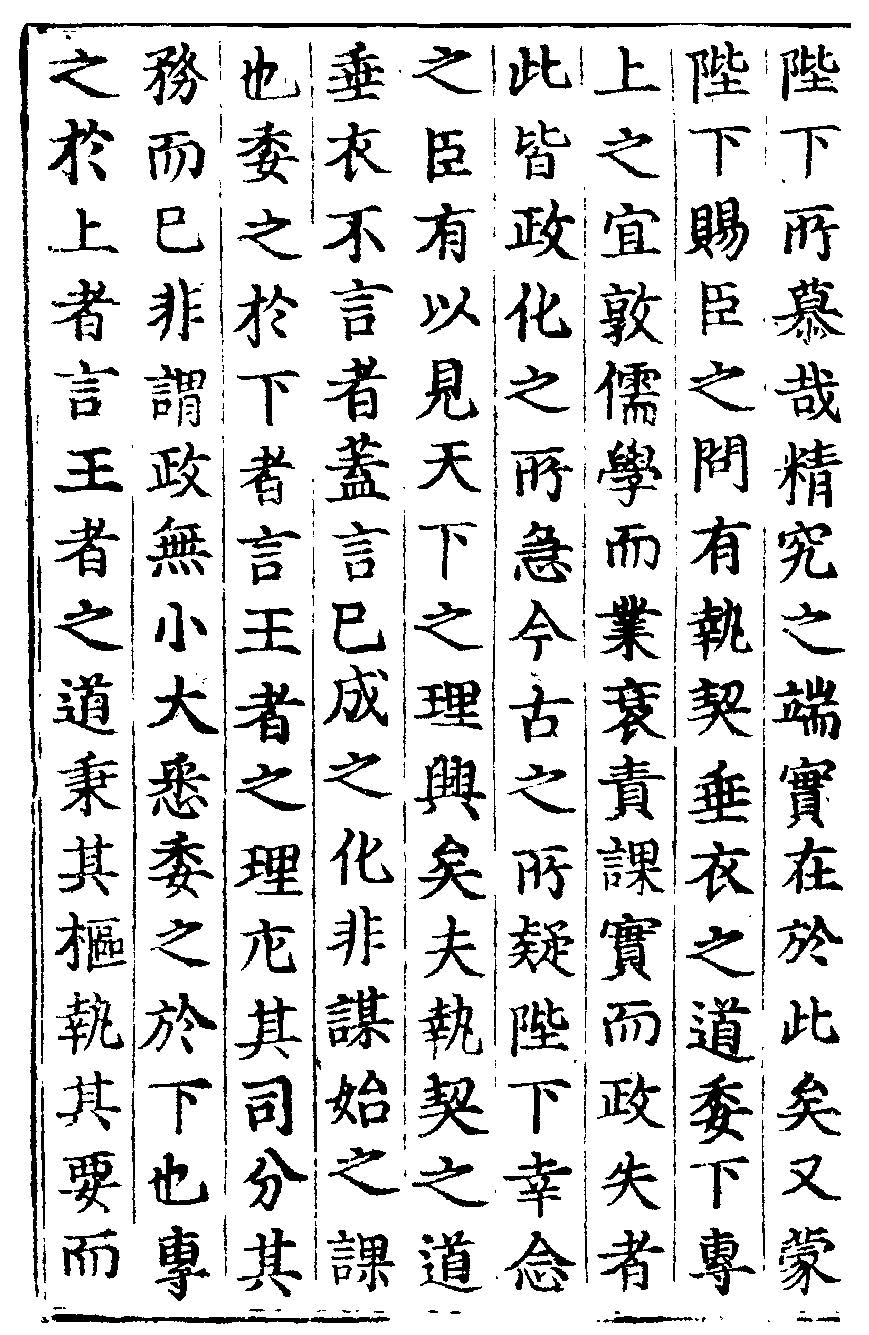 陛下所慕哉精究之端實在於此矣又蒙
陛下賜臣之問有執契垂衣之道委下專
上之宜敦儒學而業衰責課實而政失者
此皆政化之所急今古之所疑陛下幸念
之臣有以見天下之理興矣夫執契之道
垂衣不言者蓋言已成之化非謀始之課
也委之於下者言王者之理庀其司分其
務而已非謂政無小大悉委之於下也專
之於上者言王者之道秉其樞執其要而